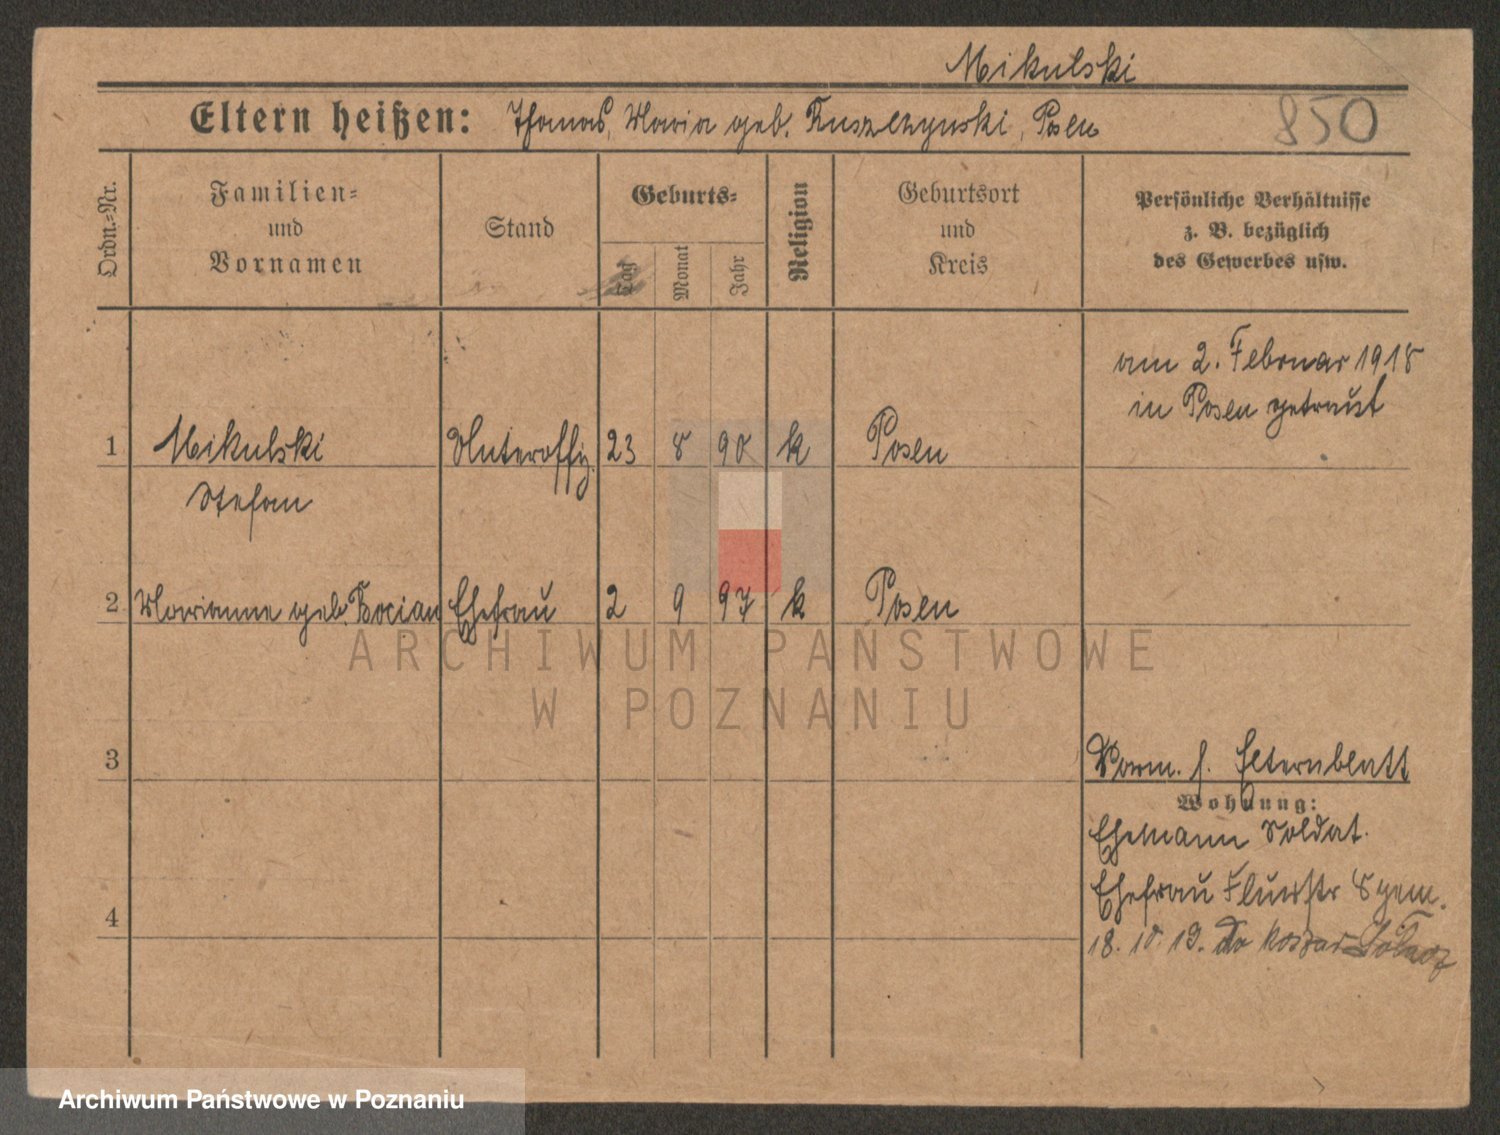 Mikulski
Eltern heißen: Thomas, Maria geb. Kuszczynski, Posen
850
Ordn.-Nr.
Familien-
und
Vornamen
Stand
Geburts-
Tag
Monat
Jahr
Religion
Geburtsort
und
Kreis
Persönliche Verhältnisse
z. B. bezüglich
des Gewerbes usw.
am 2. Februar 1918
in Posen getraut
1 Mikulski Unteroffz. 23 8 90 k Posen
Stefan
2 Marianne geb. Bocian Ehefrau 2 9 97 k Posen
ARCHIWUM PAŃSTWOWE
W POZNANIU
3
Vorm. s. Elternblatt
Wohnung:
Ehemann Soldat.
Ehefrau Flurstr 8 gem.
4
18. 10. 19. do koszar
Archiwum Państwowe w Poznaniu